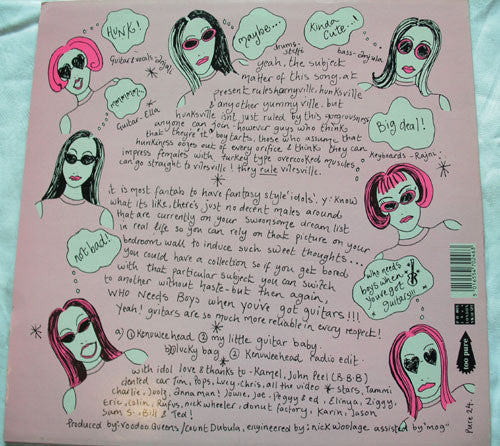 HUNK!
maybe...
Kinda Cute..!
Guitar & vocals - Anjali
drums - Steff
bass - Anjula
mmmmm.
Guitar - Ella
Big deal!
Keyboards - Rajni
not bad!
who needs
boys when
you've got
guitars!!!
yeah, the subject
matter of this song, at
present rules harnyville, hunksville
& any other yummyville. but
hunksville isn't just ruled by this gorgeousness
anyone can join - however guys who think
that they're 'it' boy tarts, those who assume that
hunkiness oozes out of every orifice & thinks they can
impress females with turkey type overcooked muscles
can go straight to vilesville! they rule vilesville.
it is most fantab to have fantasy style 'idols'. y'know
what its like, there's just no decent males around
that are currently on your sweonsome dream list
in real life so you can rely on that picture on your
bedroom wall to induce such sweet thoughts...
you could have a collection so if you get bored
with that particular subject you can switch
to another without hastle - but then again,
WHO NEEDS Boys when you've got guitars!!!
Yeah! guitars are so much more reliable in every respect!
a) ① Kenuwee head ② my little guitar baby.
b) ① lucky bag ② Kenuwee head radio edit.
with idol love & thanks to - Kamel, John Peel (B.B.C)
dented car Tim, Pops, Lucy, Chris, all the video ★ stars, Tammi
charlie, Doolz, anna man! Jowie, Joe, Peggy & ed, Elinya, Ziggy,
Eric, Colin, Rufus, nick wheeler, donut factory, Karin, Jason
Sian S. Bill & Ted!
Produced by: Voodoo Queens / Count Dubula, engineered by: nick woolage assisted by "mog"
too pure
Pure 24.